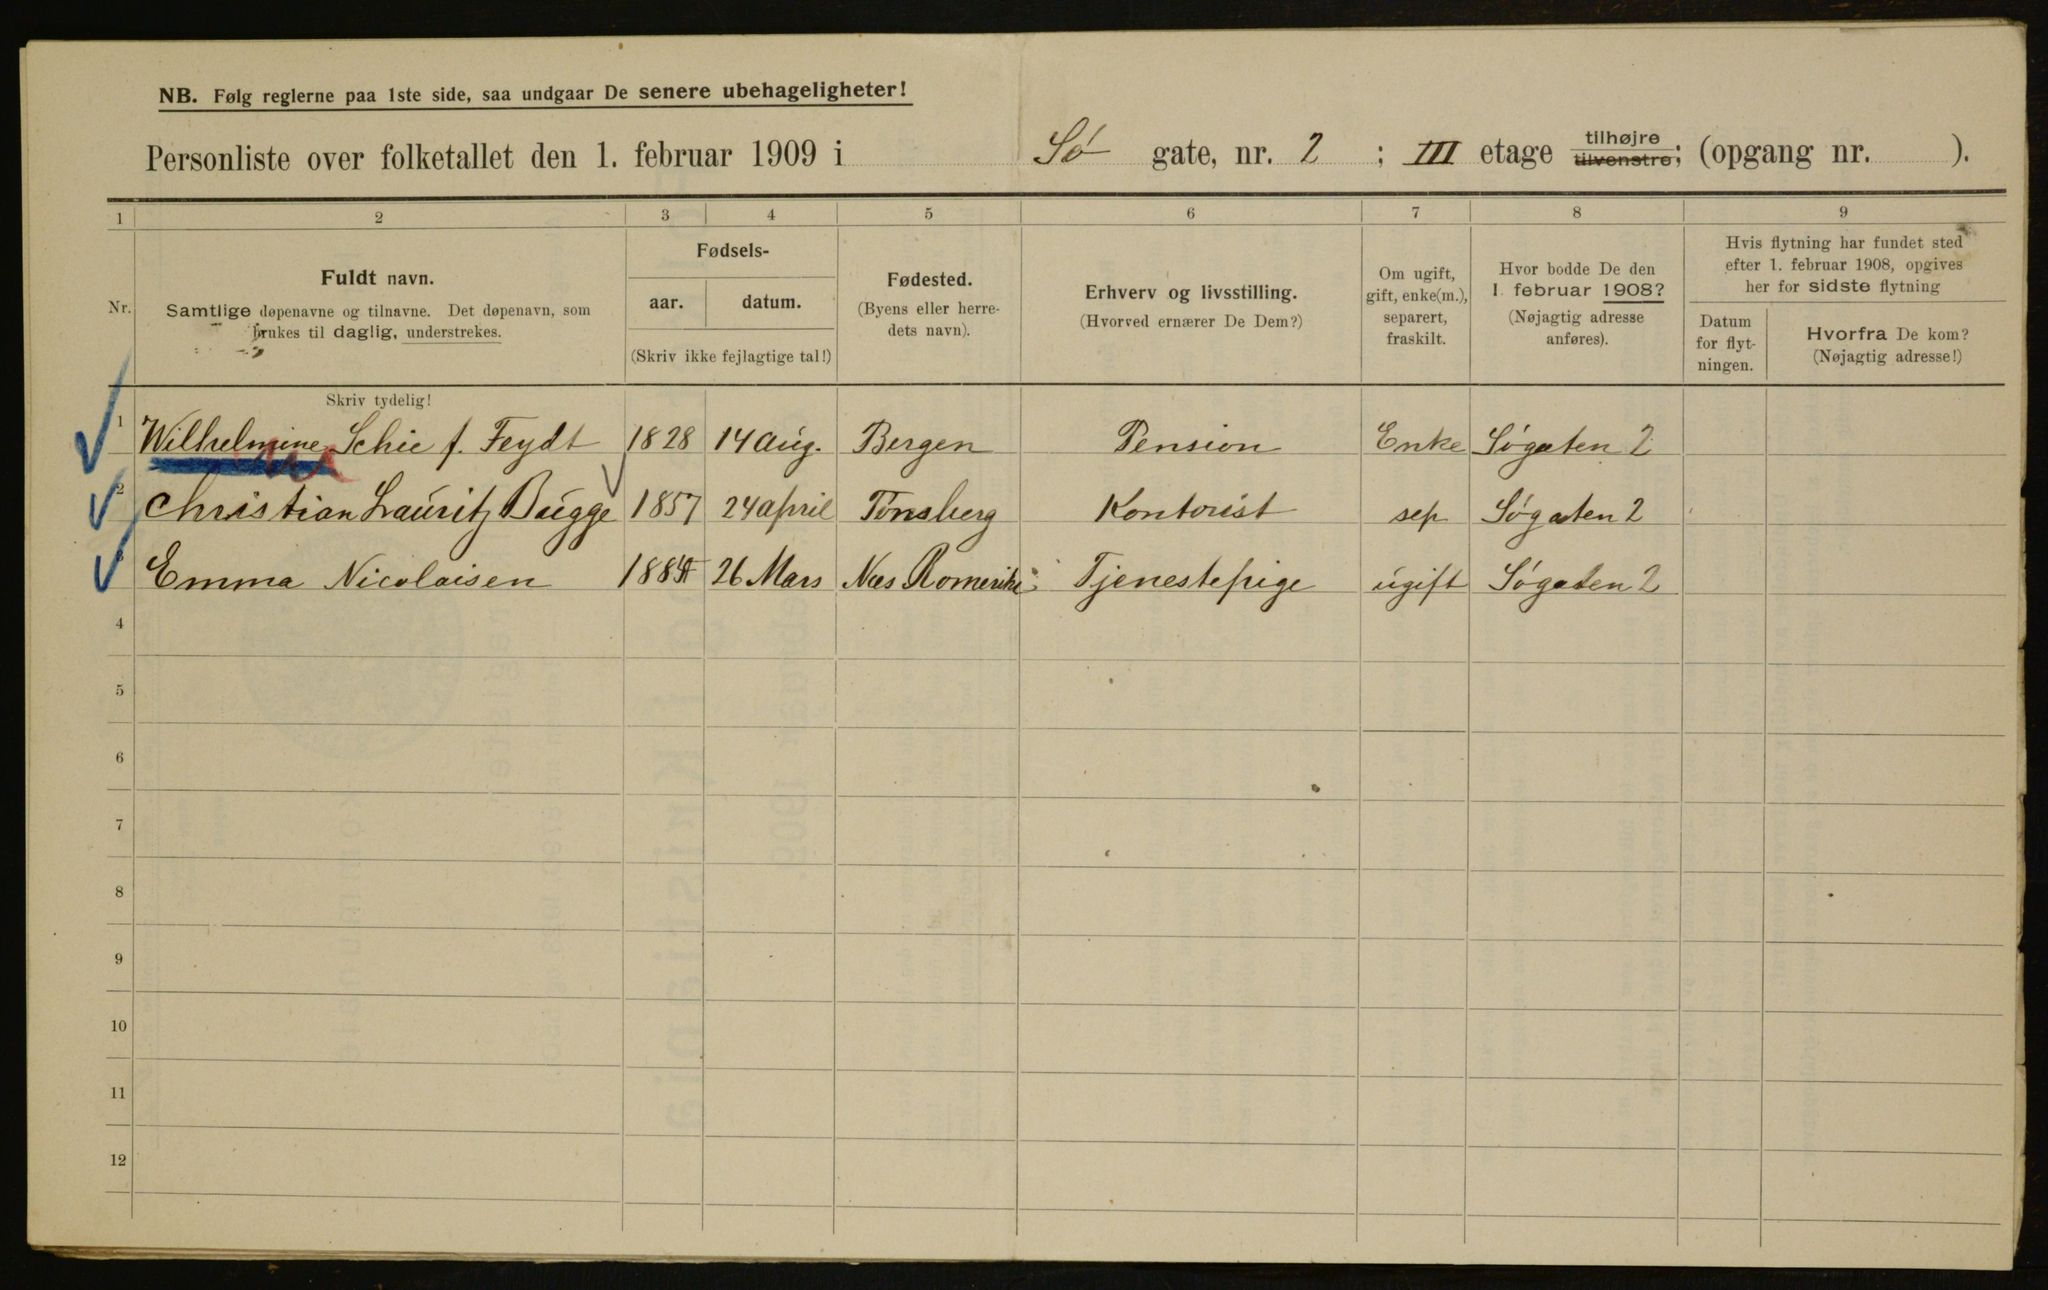 NB. Følg reglerne paa 1ste side, saa undgaar De senere ubehageligheter!
Personliste over folketallet den 1. februar 1909 i Sø gate, nr. 2 ; III etage tilhøjre tilvenstre; (opgang nr. ).
1 2 3 4 5 6 7 8 9
Nr.
Fuldt navn.
Samtlige døpenavne og tilnavne. Det døpenavn, som
brukes til daglig, understrekes.
Skriv tydelig!
Fødsels-
aar. datum.
(Skriv ikke fejlagtige tal!)
Fødested.
(Byens eller herre-
dets navn).
Erhverv og livsstilling.
(Hvorved ernærer De Dem?)
Om ugift,
gift, enke(m.),
separert,
fraskilt.
Hvor bodde De den
1. februar 1908?
(Nøjagtig adresse
anføres).
Hvis flytning har fundet sted
efter 1. februar 1908, opgives
her for sidste flytning
Datum
for flyt-
ningen.
Hvorfra De kom?
(Nøjagtig adresse!)
1 Wilhelmine Schie f. Feydt 1828 14 aug. Bergen Pension Enke Søgaten 2
2 Christian Lauritz Bugge 1857 24 april Tønsberg Kontorist sep Søgaten 2
3 Emma Nicolaisen 26 Mars Næs Romerike Tjenestepige ugift Søgaten 2
4
5
6
7
8
9
10
11
12